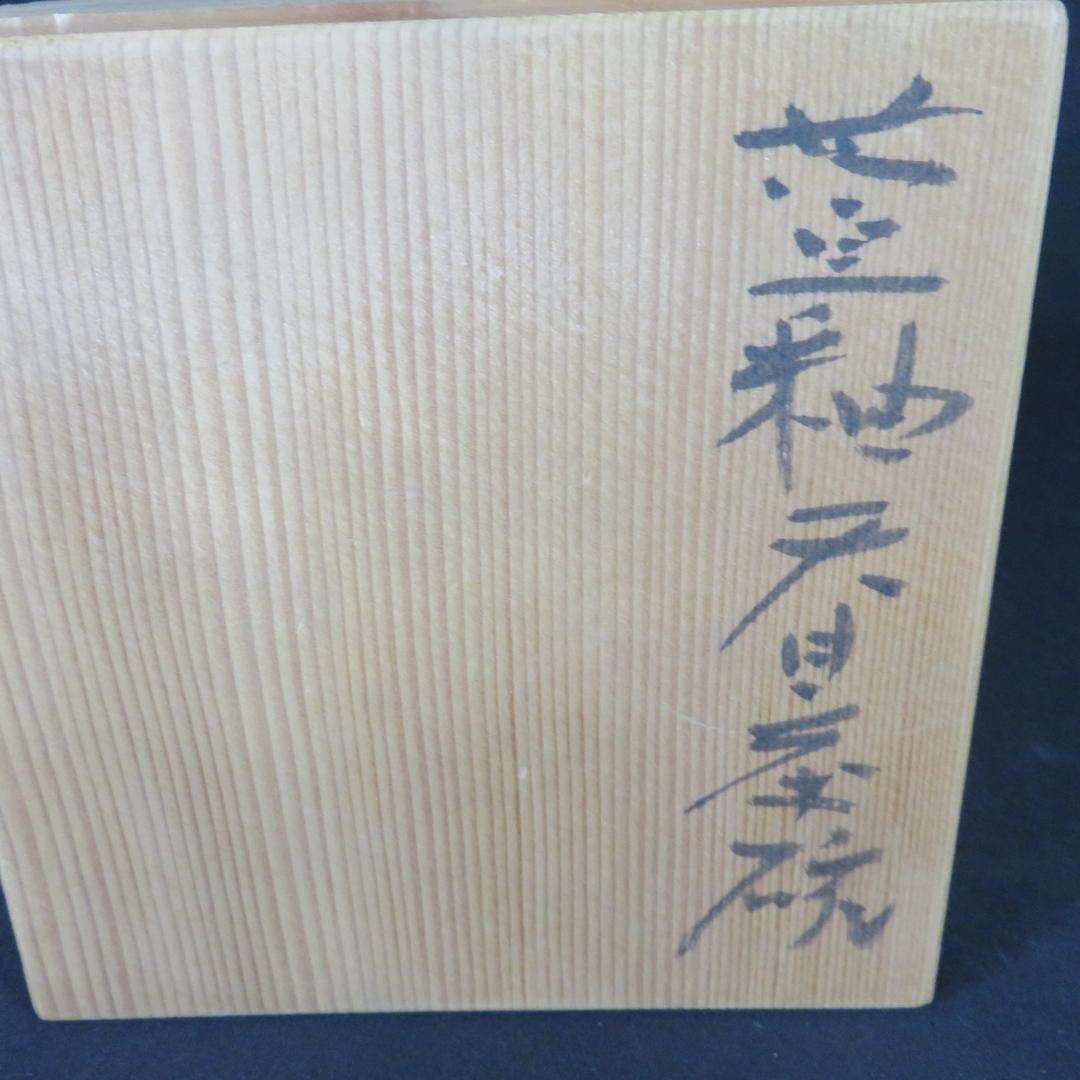 藍釉天目茶碗